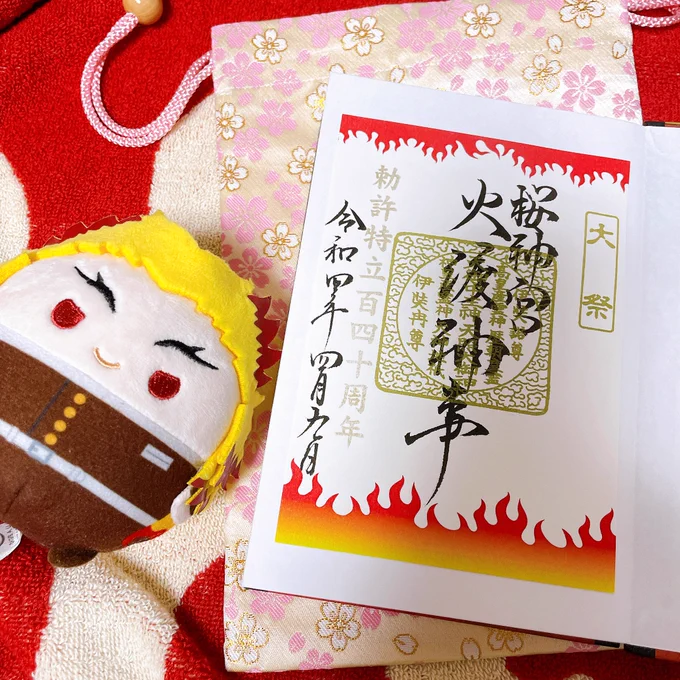 大祭
桜神宮
火渡神事
勅許特立百四十周年
令和四年四月九日
伊弉冉尊